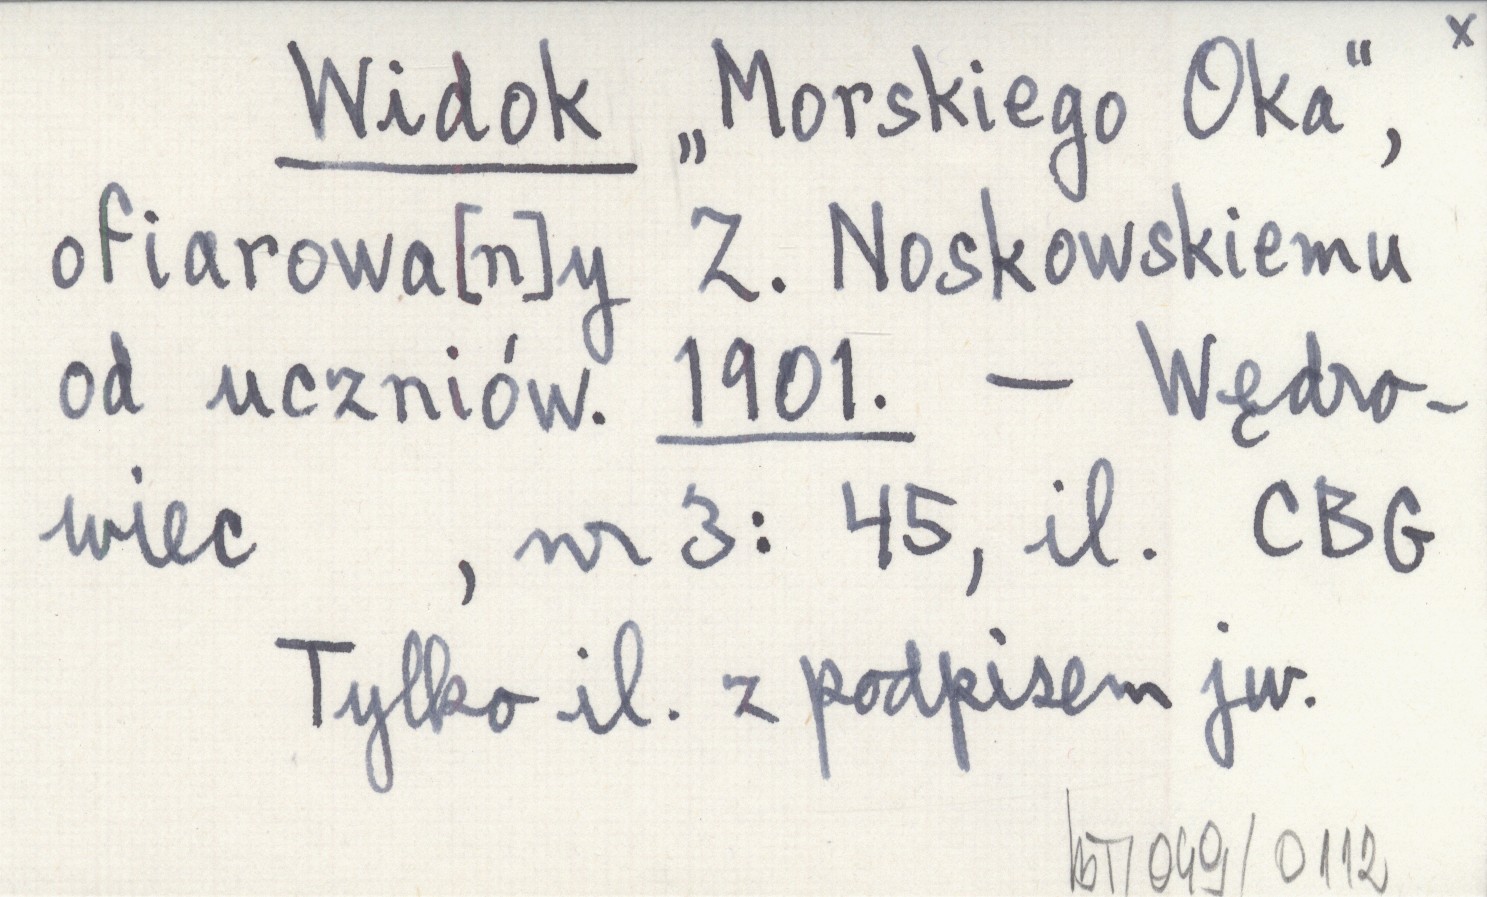 x
Widok „Morskiego Oka“,
ofiarowa[n]y Z. Noskowskiemu
od uczniów. 1901. — Wędro-
wiec , nr 3: 45, il. CBG
Tylko il. z podpisem jw.
/049/0112